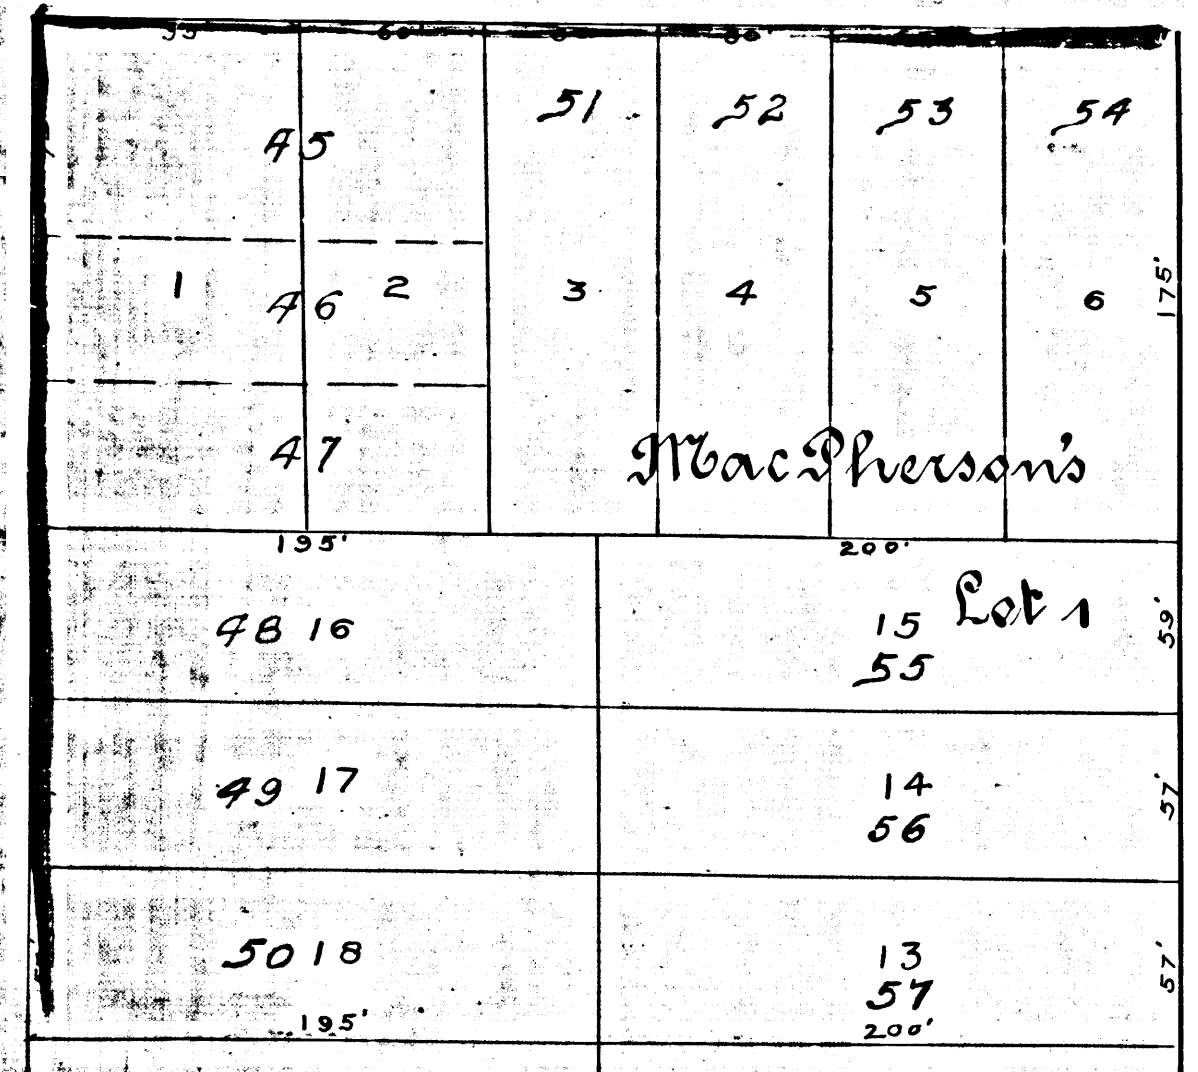 60'
51 52 53 54
45
1 46 2 3 4 5 6 175'
47 MacPherson's
195' 200'
48 16 15 Lot 1 59'
55
49 17 14 57'
56
50 18 13 57'
57
195' 200'